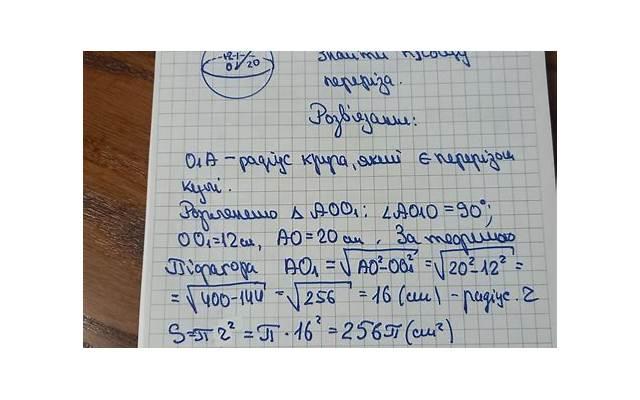 12
O 20
Знайти площу
переріза.
Розв'язання:
O₁A – радіус круга, який є перерізом
кулі.
Розглянемо Δ AOO₁: ∠AO₁O = 90°;
OO₁=12см, AO=20 см. За теоремою
Піфагора AO₁ = √AO²-OO₁² = √20²-12² =
= √400-144 = √256 = 16 (см) – радіус. r
S=πr² = π · 16² = 256π(см²)